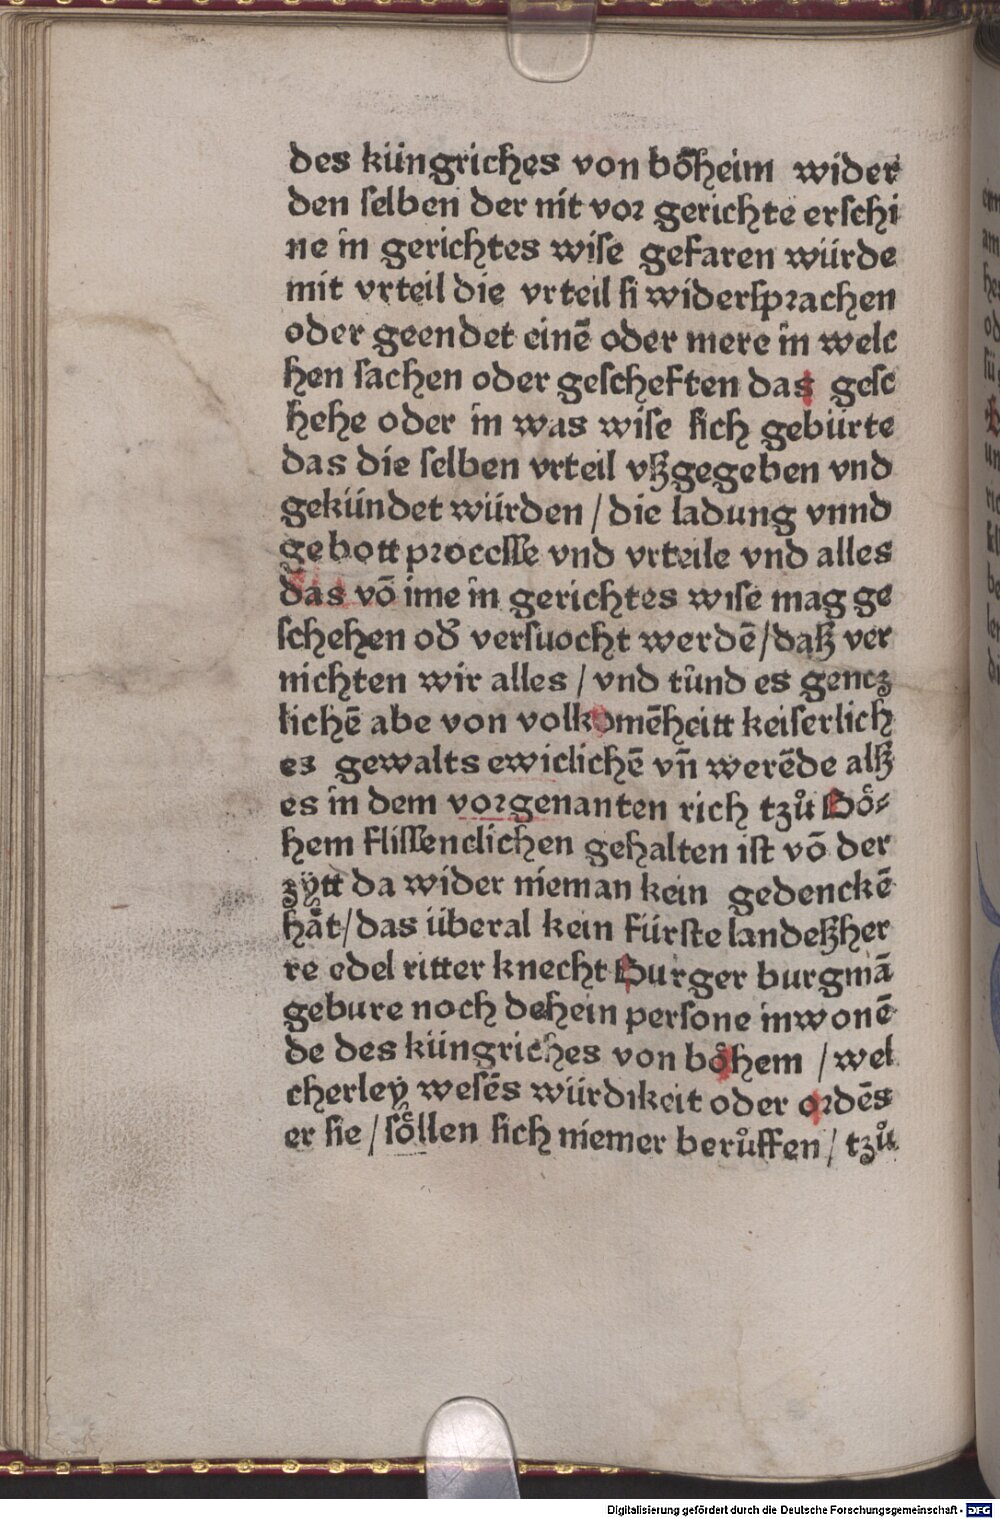 des küngriches von bôheim wider
den selben der nit vor gerichte erschi
ne in gerichtes wise gefaren würde
mit vrteil die vrteil si widersprachen
oder geendet einē oder mere in welc
hen sachen oder gescheften das gesc
hehe oder in was wise sich gebürte
das die selben vrteil vßgegeben vnd
gekündet würden / die ladung vnnd
gebott processe vnd vrteile vnd alles
das vō ime in gerichtes wise mag ge
schehen od versuocht werdē / daß ver
nichten wir alles / vnd tůnd es gencz
lichē abe von volkomēheitt keiserlich
es gewalts ewiclichē vn̄ werēde alß
es in dem vorgenanten rich tzů Boͤ⸗
hem flissenclichen gehalten ist vō der
zÿtt da wider nieman kein gedenckē
haͤt / das überal kein fürste landeßher
re edel ritter knecht Burger burgmā
gebure noch dehein persone inwonē
de des küngriches von boͤhem / wel
cherleÿ wesēs würdikeit oder ordēs
er sie / soͤllen sich niemer berůffen / tzů
Digitalisierung gefördert durch die Deutsche Forschungsgemeinschaft - DFG